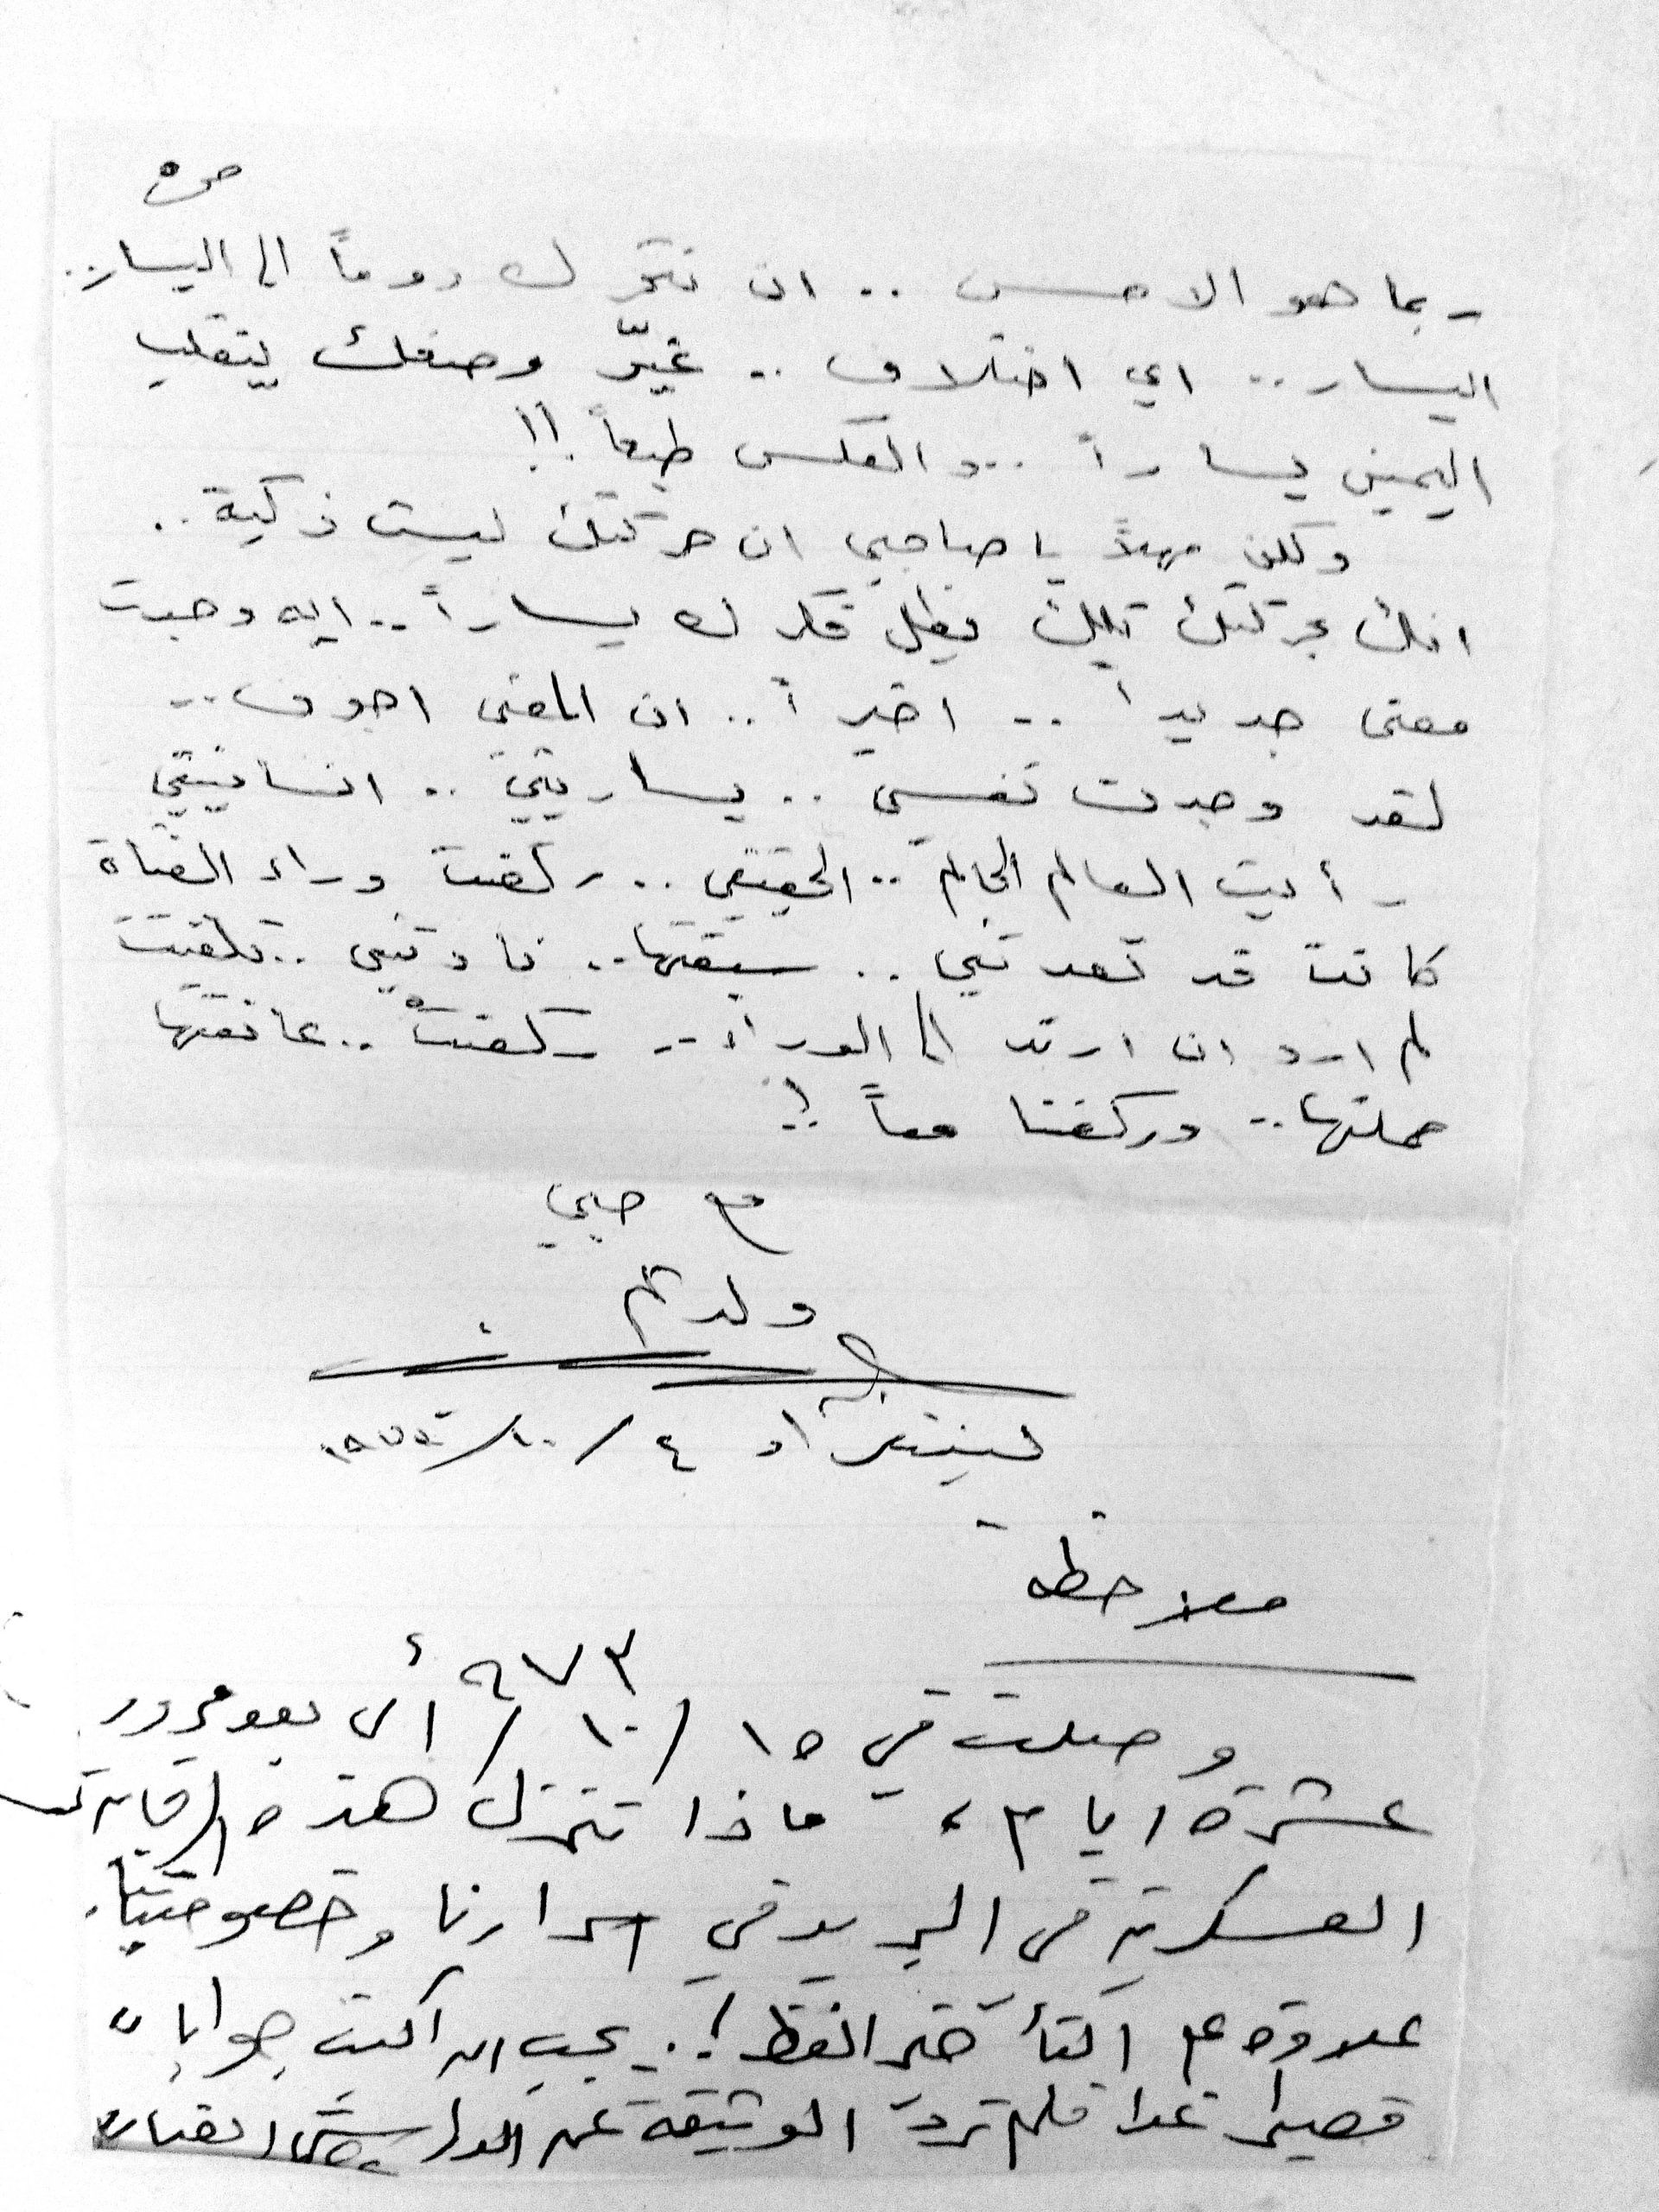 ص ٥
ربما هو الاحسن .. ان نتحرك دوماً الى اليسار ..
اليسار .. اي اختلاف .. غيّر وضعك ينقلب
اليمين يساراً .. والعكس طبعاً !!
ولكن مهلاً يا صاحبي ان حركتك ليست ذكية ..
انك بحركتك تلك يظل فكرك يساراً .. ايه وجدت
معنى جديداً .. اخيراً .. ان المعنى اجوف ..
لقد وجدت نفسي .. يساريتي .. انسانيتي
رأيت العالم الحالم .. الحقيقي .. ركضت وراء الفتاة
كانت قد تعدتني .. سبقتها .. نادتني .. تلفت
لم ارد ان ارتد الى الوراء .. ركضت .. عانقتها
حملتها .. وركضنا معاً !
مع حبي
ولدكم
لينينغراد ٤/١٠/١٩٧٣
ملاحظة
٩٧٣
وصلت في ١٥/١٠/ أي بعد مرور
عشرة ايام، ماذا تنزل هذه الرقابة
العسكرية في البريد في اسرارنا وخصوصيتنا.
علاوة على التأخير الفظ !.. يجب ان اكتب جوابا
قصيرا غدا فلم ترد الوثيقة عن الدراسة